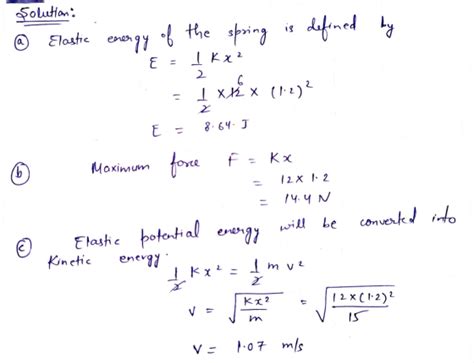 Solution:
(a) Elastic energy of the spring is defined by
E = 1/2 Kx²
= 1/2 × 12 6 × (1.2)²
E = 8.64 J
(b) Maximum force F = Kx
= 12 × 1.2
= 14.4 N
(c) Elastic potential energy will be converted into
Kinetic energy.
1/2 Kx² = 1/2 m v²
v = √(Kx²/m) = √(12×(1.2)²/15)
v = 1.07 m/s